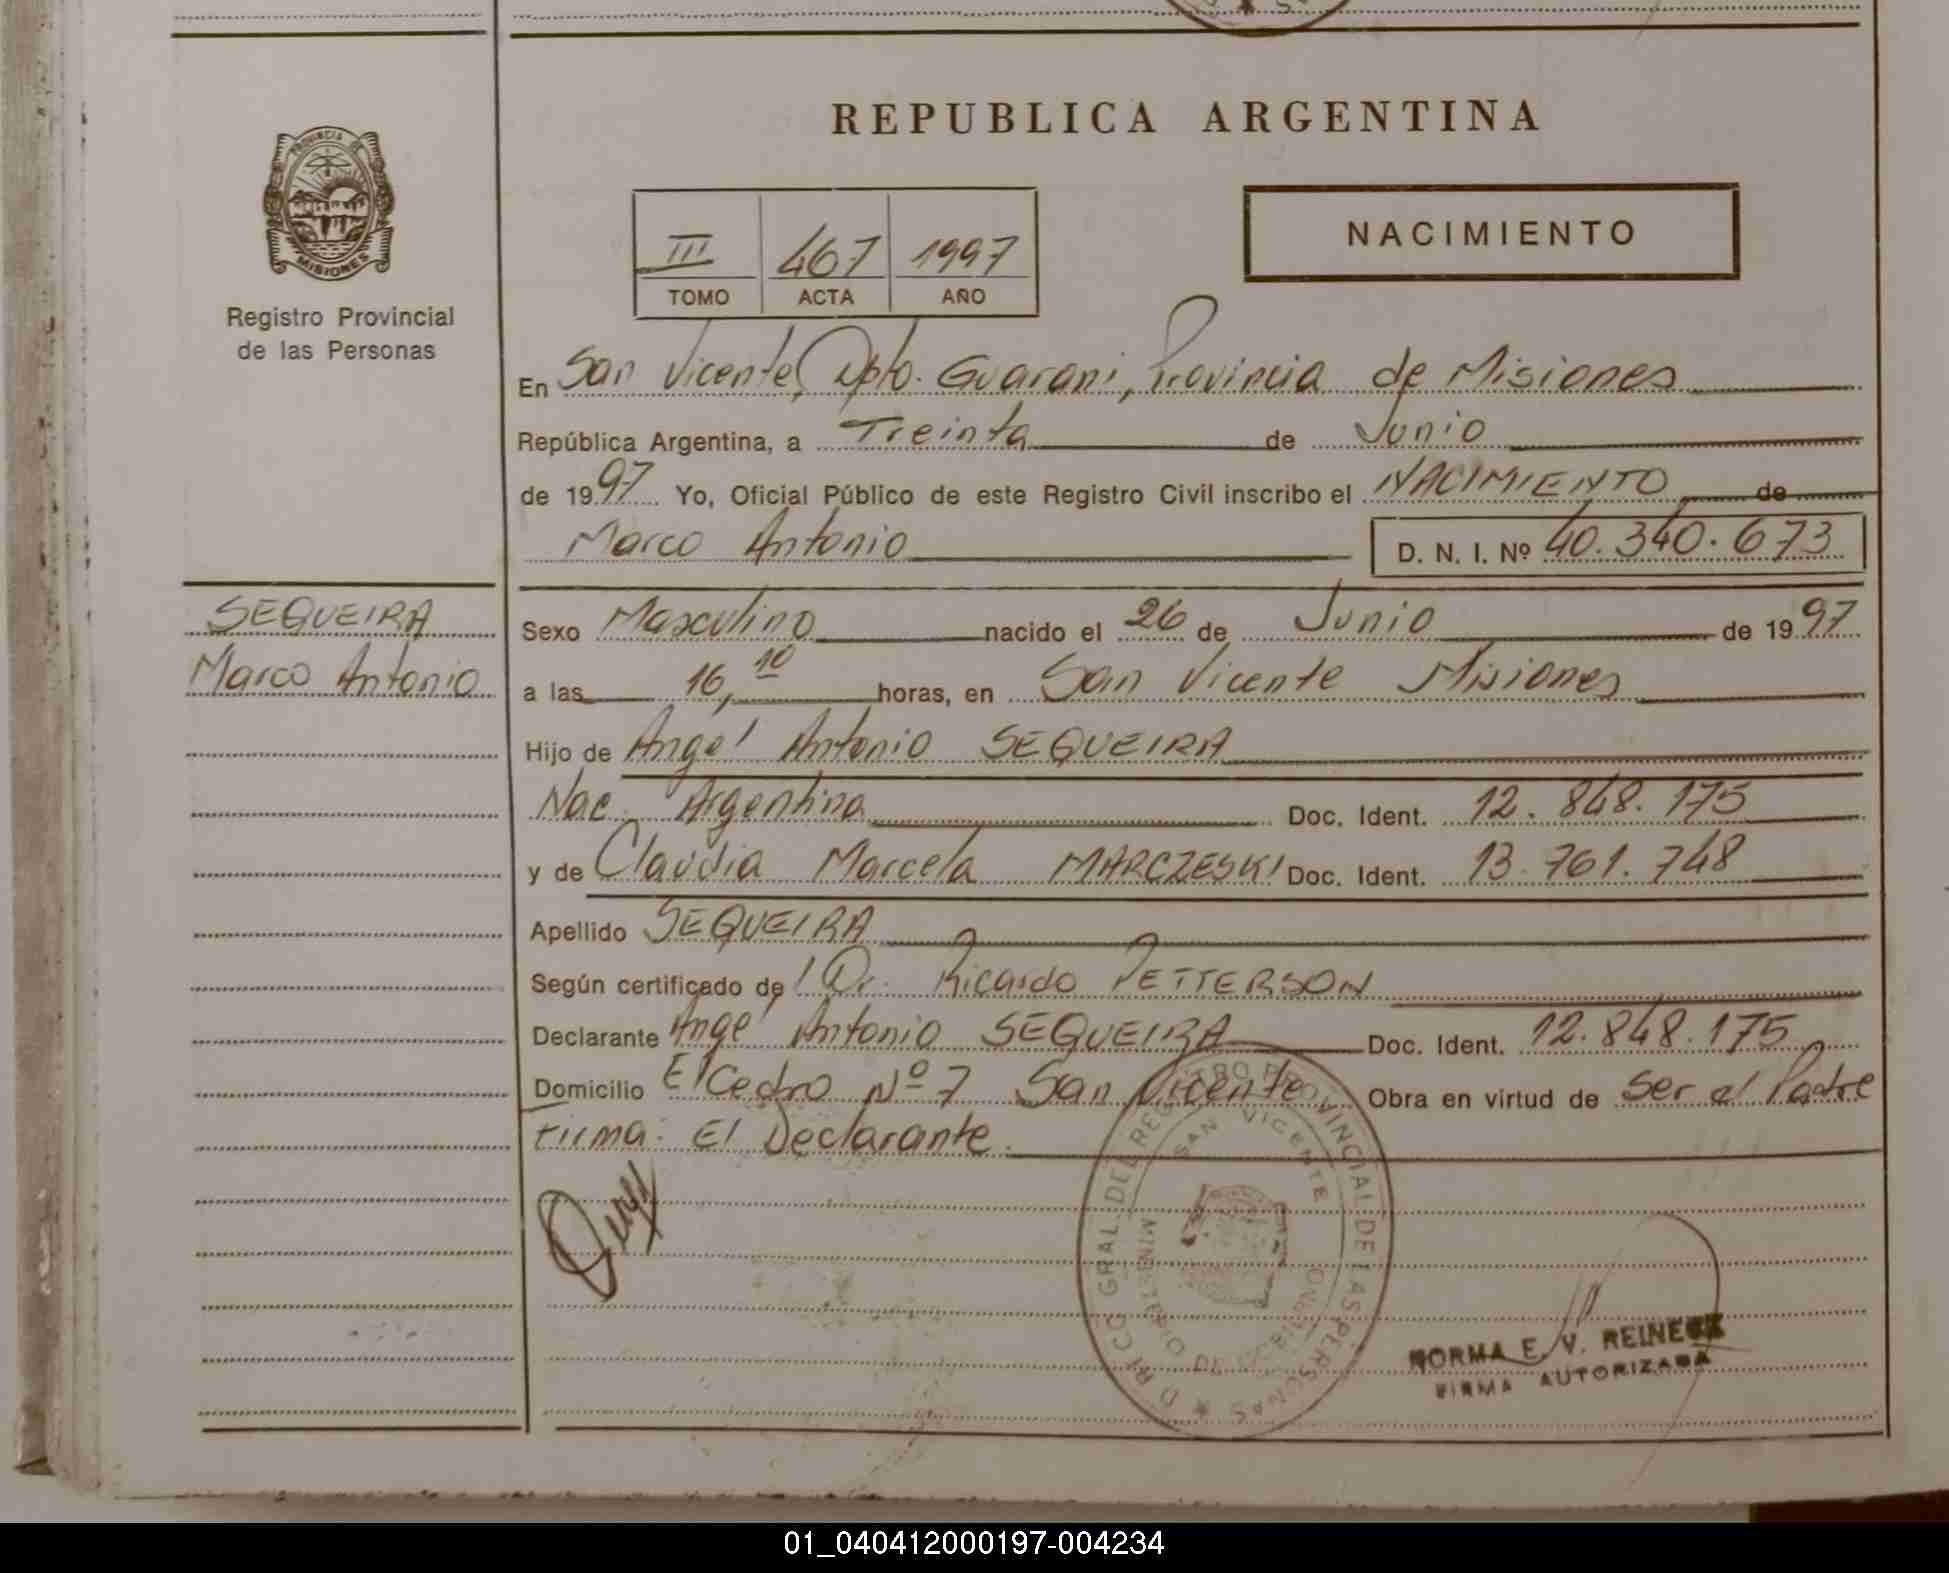 REPUBLICA ARGENTINA
PROVINCIA DE
MISIONES
Registro Provincial
de las Personas
III 467 1997
TOMO ACTA AÑO
NACIMIENTO
En San Vicente, Dpto. Guarani, Provincia de Misiones
República Argentina, a Treinta de Junio
de 1997 Yo, Oficial Público de este Registro Civil inscribo el NACIMIENTO de
Marco Antonio D. N. I. Nº 40.340.673
SEQUEIRA
Marco Antonio
Sexo Masculino nacido el 26 de Junio de 1997
a las 16,10 horas, en San Vicente Misiones
Hijo de Angel Antonio SEQUEIRA
Nac. Argentina Doc. Ident. 12.848.175
y de Claudia Marcela MARCZESKI Doc. Ident. 13.761.748
Apellido SEQUEIRA
Según certificado de l Dr. Ricardo PETTERSON
Declarante Angel Antonio SEQUEIRA Doc. Ident. 12.848.175
Domicilio El Cedro Nº 7 San Vicente Obra en virtud de Ser el Padre
Firma: El Declarante.
GRAL. DEL REGISTRO PROVINCIAL DE LAS PERSONAS
SAN VICENTE
NORMA E. V. REINECK
FIRMA AUTORIZADA
01_040412000197-004234